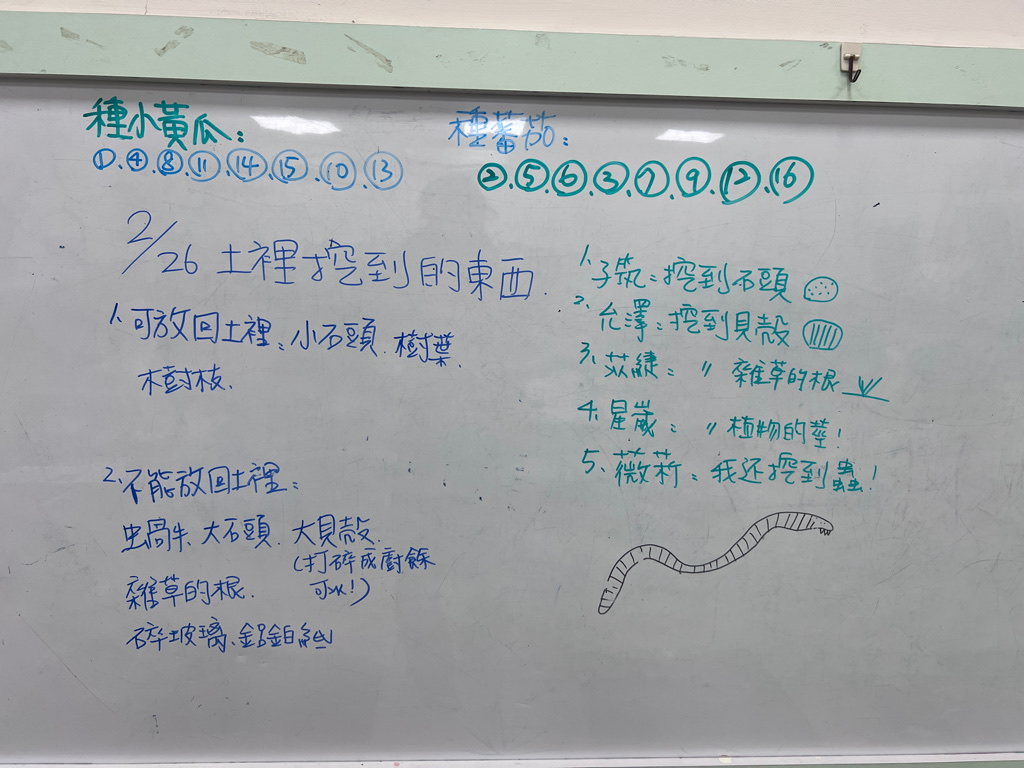 種小黃瓜：
①.④.⑧.⑪.⑭.⑮.⑩.⑬
種蕃茄：
②.⑤.⑥.③.⑦.⑨.⑫.⑯
2/26 土裡挖到的東西.
1.可放回土裡：小石頭.樹葉.
木樹枝.
2.不能放回土裡：
蝸牛.大石頭.大貝殼.
(打碎成廚餘
可以!)
雜草的根.
碎玻璃、鋁鉑紙
1.子筑：挖到石頭
2.允澤：挖到貝殼
3.苡緁：〃 雜草的根
4.星崴：〃 植物的莖!
5.薇菥：我还挖到蟲!